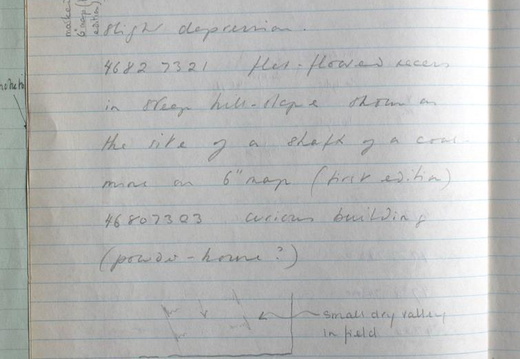 slight depression.
4682 7321 flat-floored recess
in steep hill-slope shown as
the site of a shaft of a coal
mine on 6" map (first edition)
46807303 curious building
(powder-house?)
small dry valley
in field